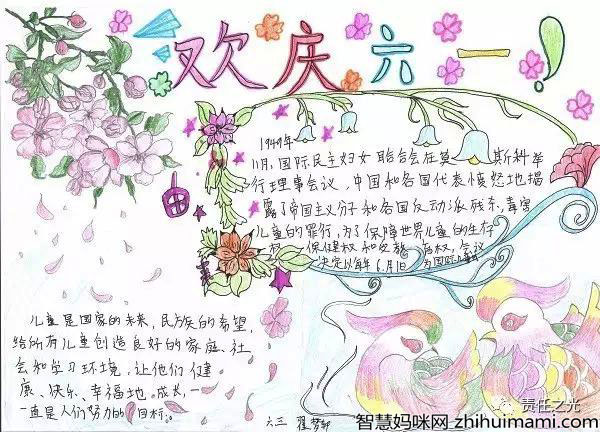 欢庆六一!
1949年
11月,国际民主妇女联合会在莫斯科举
行理事会议,中国和各国代表愤怒地揭
露了帝国主义分子和各国反动派残杀、毒害
儿童的罪行,为了保障世界儿童的生存
权、保健权和受教育权,会议
决定以每年6月1日为国际儿童
儿童是国家的未来,民族的希望,
给所有儿童创造良好的家庭、社
会和学习环境,让他们健
康、快乐、幸福地成长,一
直是人们努力的目标。
六三
责任之光
智慧妈咪网zhihuimami.com